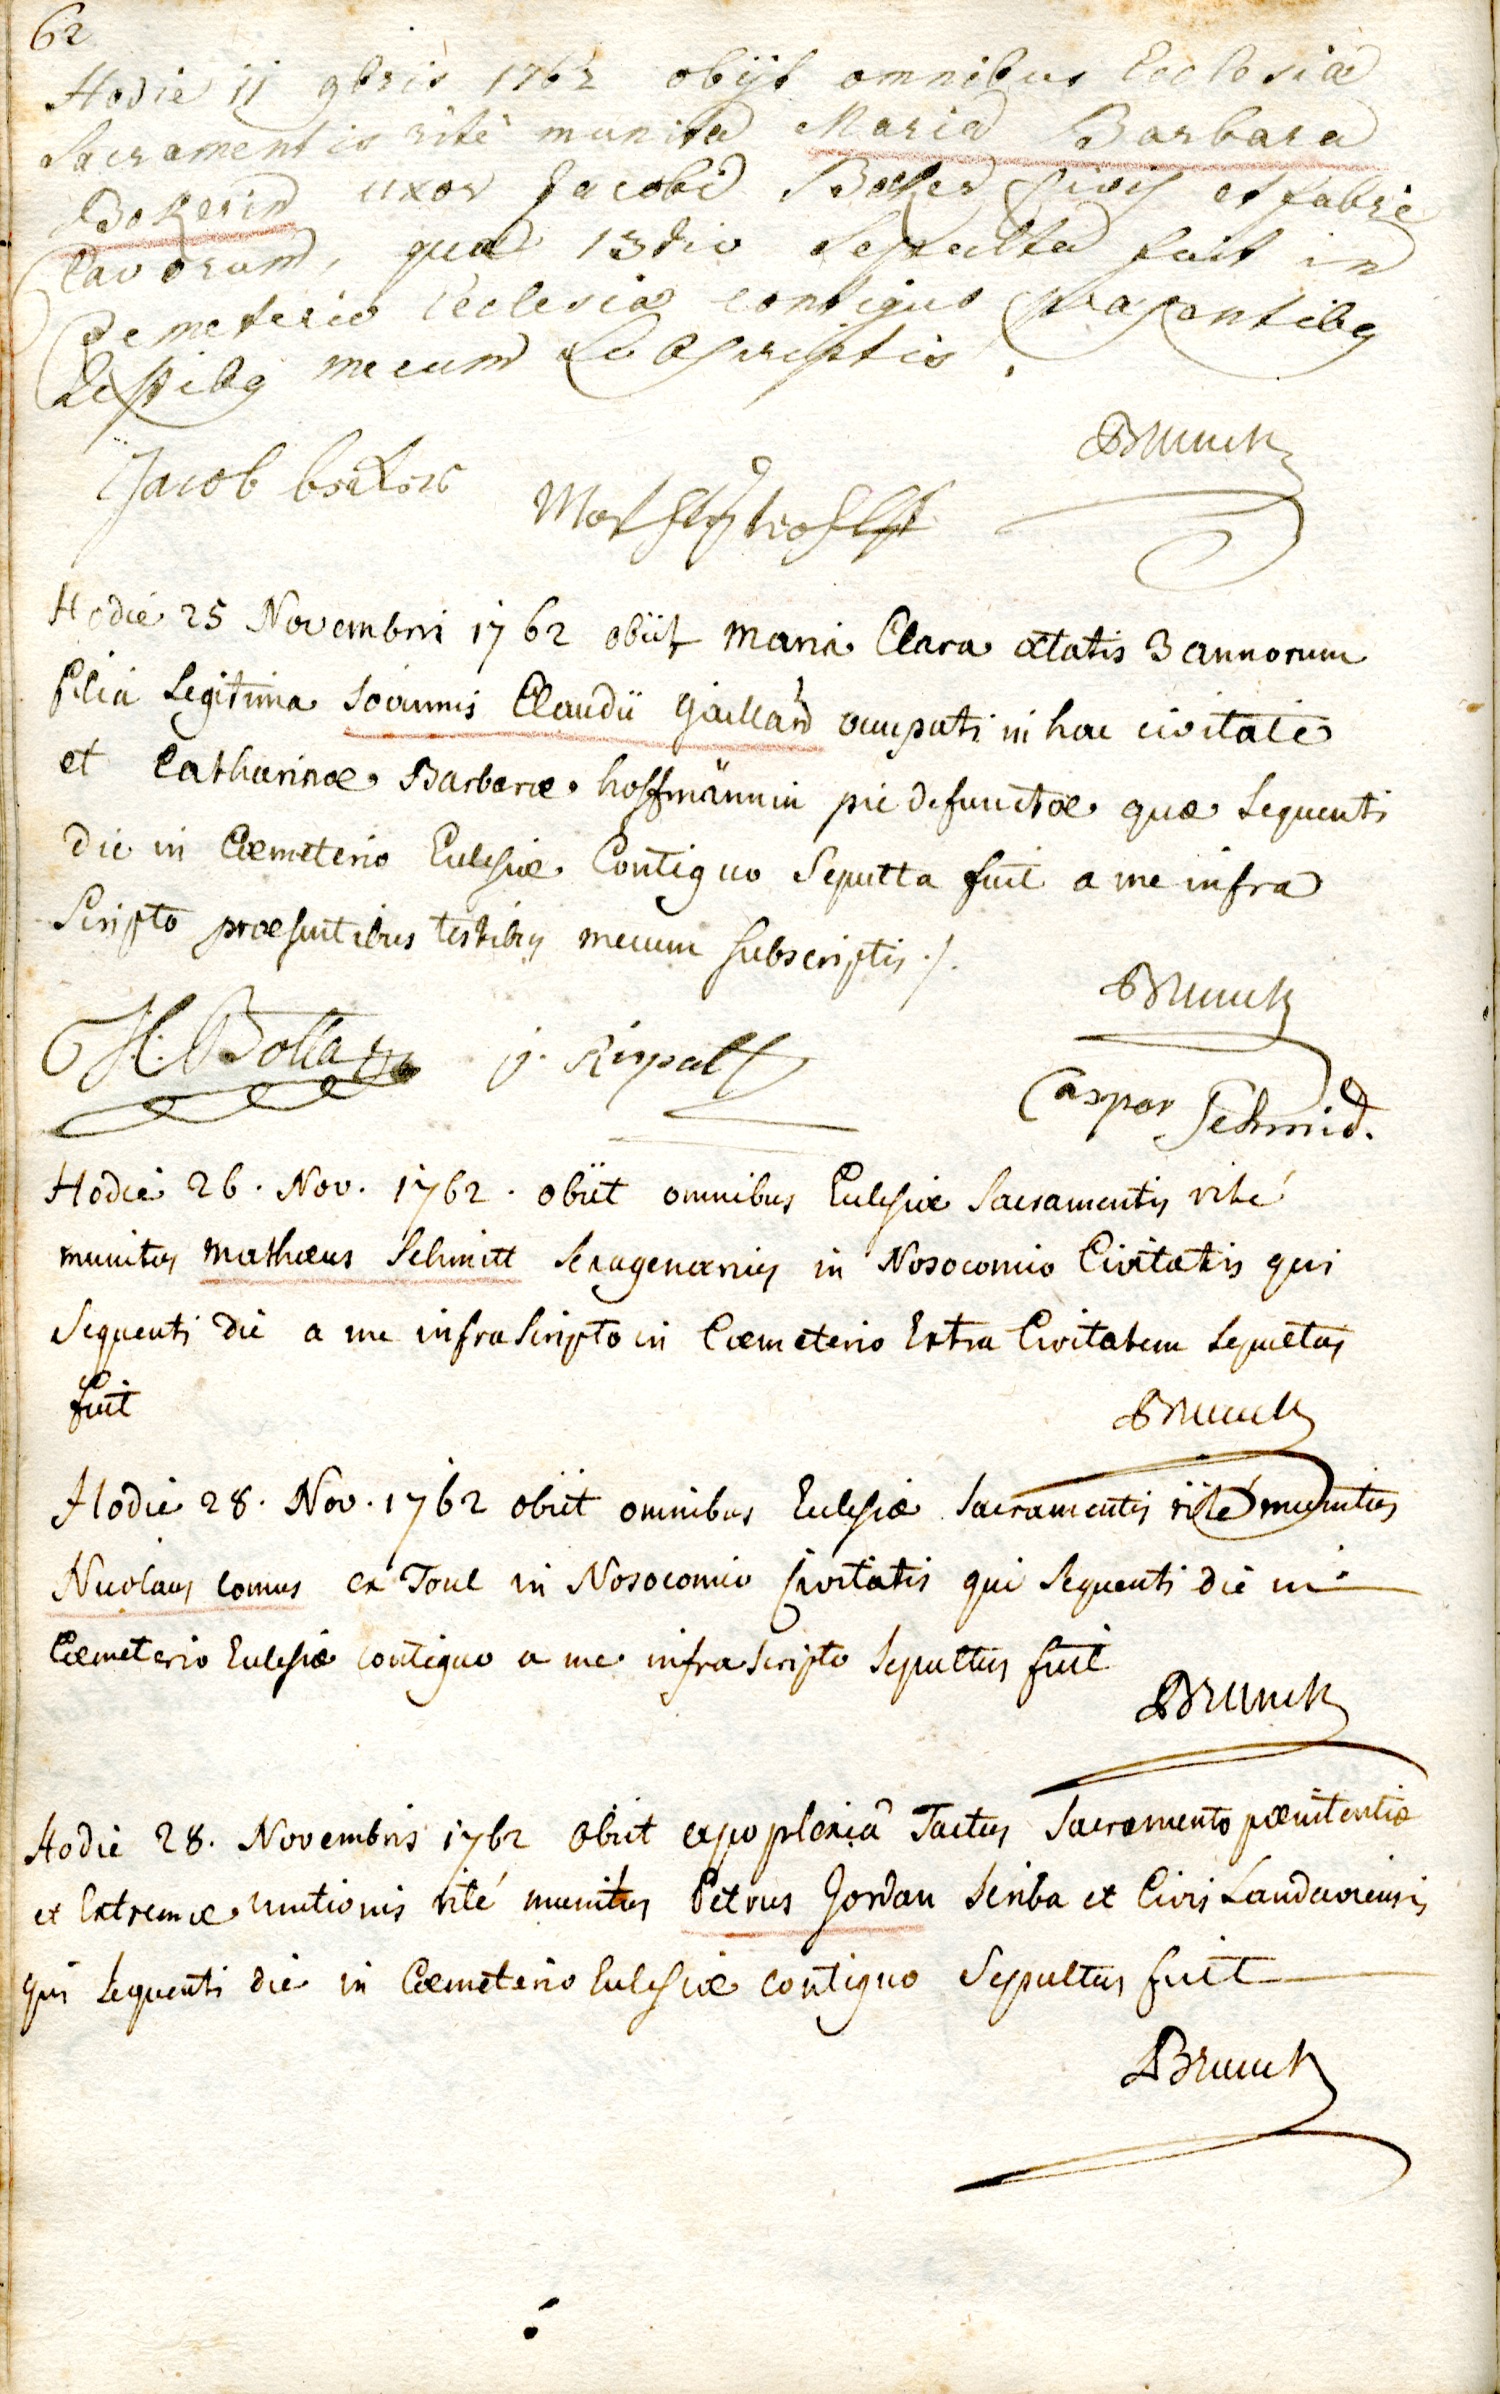 62
Hodie 11 9bris 1762 obijt omnibus Ecclesiæ
Sacramentis rité munita Maria Barbara
Bokerin uxor Jacobi Boker civis et fabri
qua 13tio Sepulta fuit in
Cemeterio Ecclesiæ contiguo præsentibq
testibq mecum Subscriptis.
Brunck
Jacob
Hodie 25 Novembris 1762 obiit Maria Clara ætatis 3 annorum
filia Legitima Joannis Claudii Gaillard occupati in hac civitate
et Catharinæ Barbaræ hoffmännin pie defunctæ quæ Sequenti
die in Cœmeterio Ecclesiæ Contiguo Sepulta fuit a me infra
Scripto præsentibus testibus mecum subscriptis ./.
Brunck
H. Bolla
j. Rispalt
Caspar Schmid.
Hodie 26. Nov. 1762. obiit omnibus Ecclesiæ Sacramentis rité
munitus Mathæus Schmitt Sexagenarius in Nosocomio Civitatis qui
Sequenti die a me infra Scripto in Cœmeterio Extra Civitatem Sepultus
fuit
Brunck
Hodie 28. Nov. 1762 obiit omnibus Ecclesiæ Sacramentis rité munitus
Nicolaus comus ex Toul in Nosocomio Civitatis qui Sequenti die in
Cœmeterio Ecclesiæ contiguo a me infra Scripto Sepultus fuit
Brunck
Hodie 28. Novembris 1762 obiit apoplexiâ Tactus Sacramento pœnitentiæ
et Extremæ unctionis rité munitus Petrus Jordan Scriba et Civis Landaviensis
qui Sequenti die in Cœmeterio Ecclesiæ contiguo Sepultus fuit
Brunck